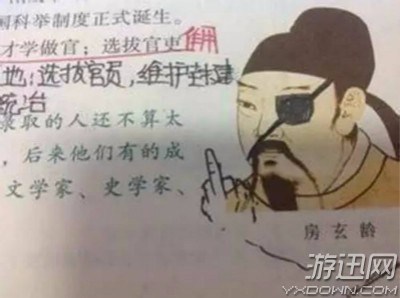 阁科举制度正式诞生。
才学做官；选拔官吏 佣
地：选拔官员，维护封建
统治
录取的人还不算太
，后来他们有的成
文学家、史学家、
房玄龄
游迅网
YXDOWN.COM